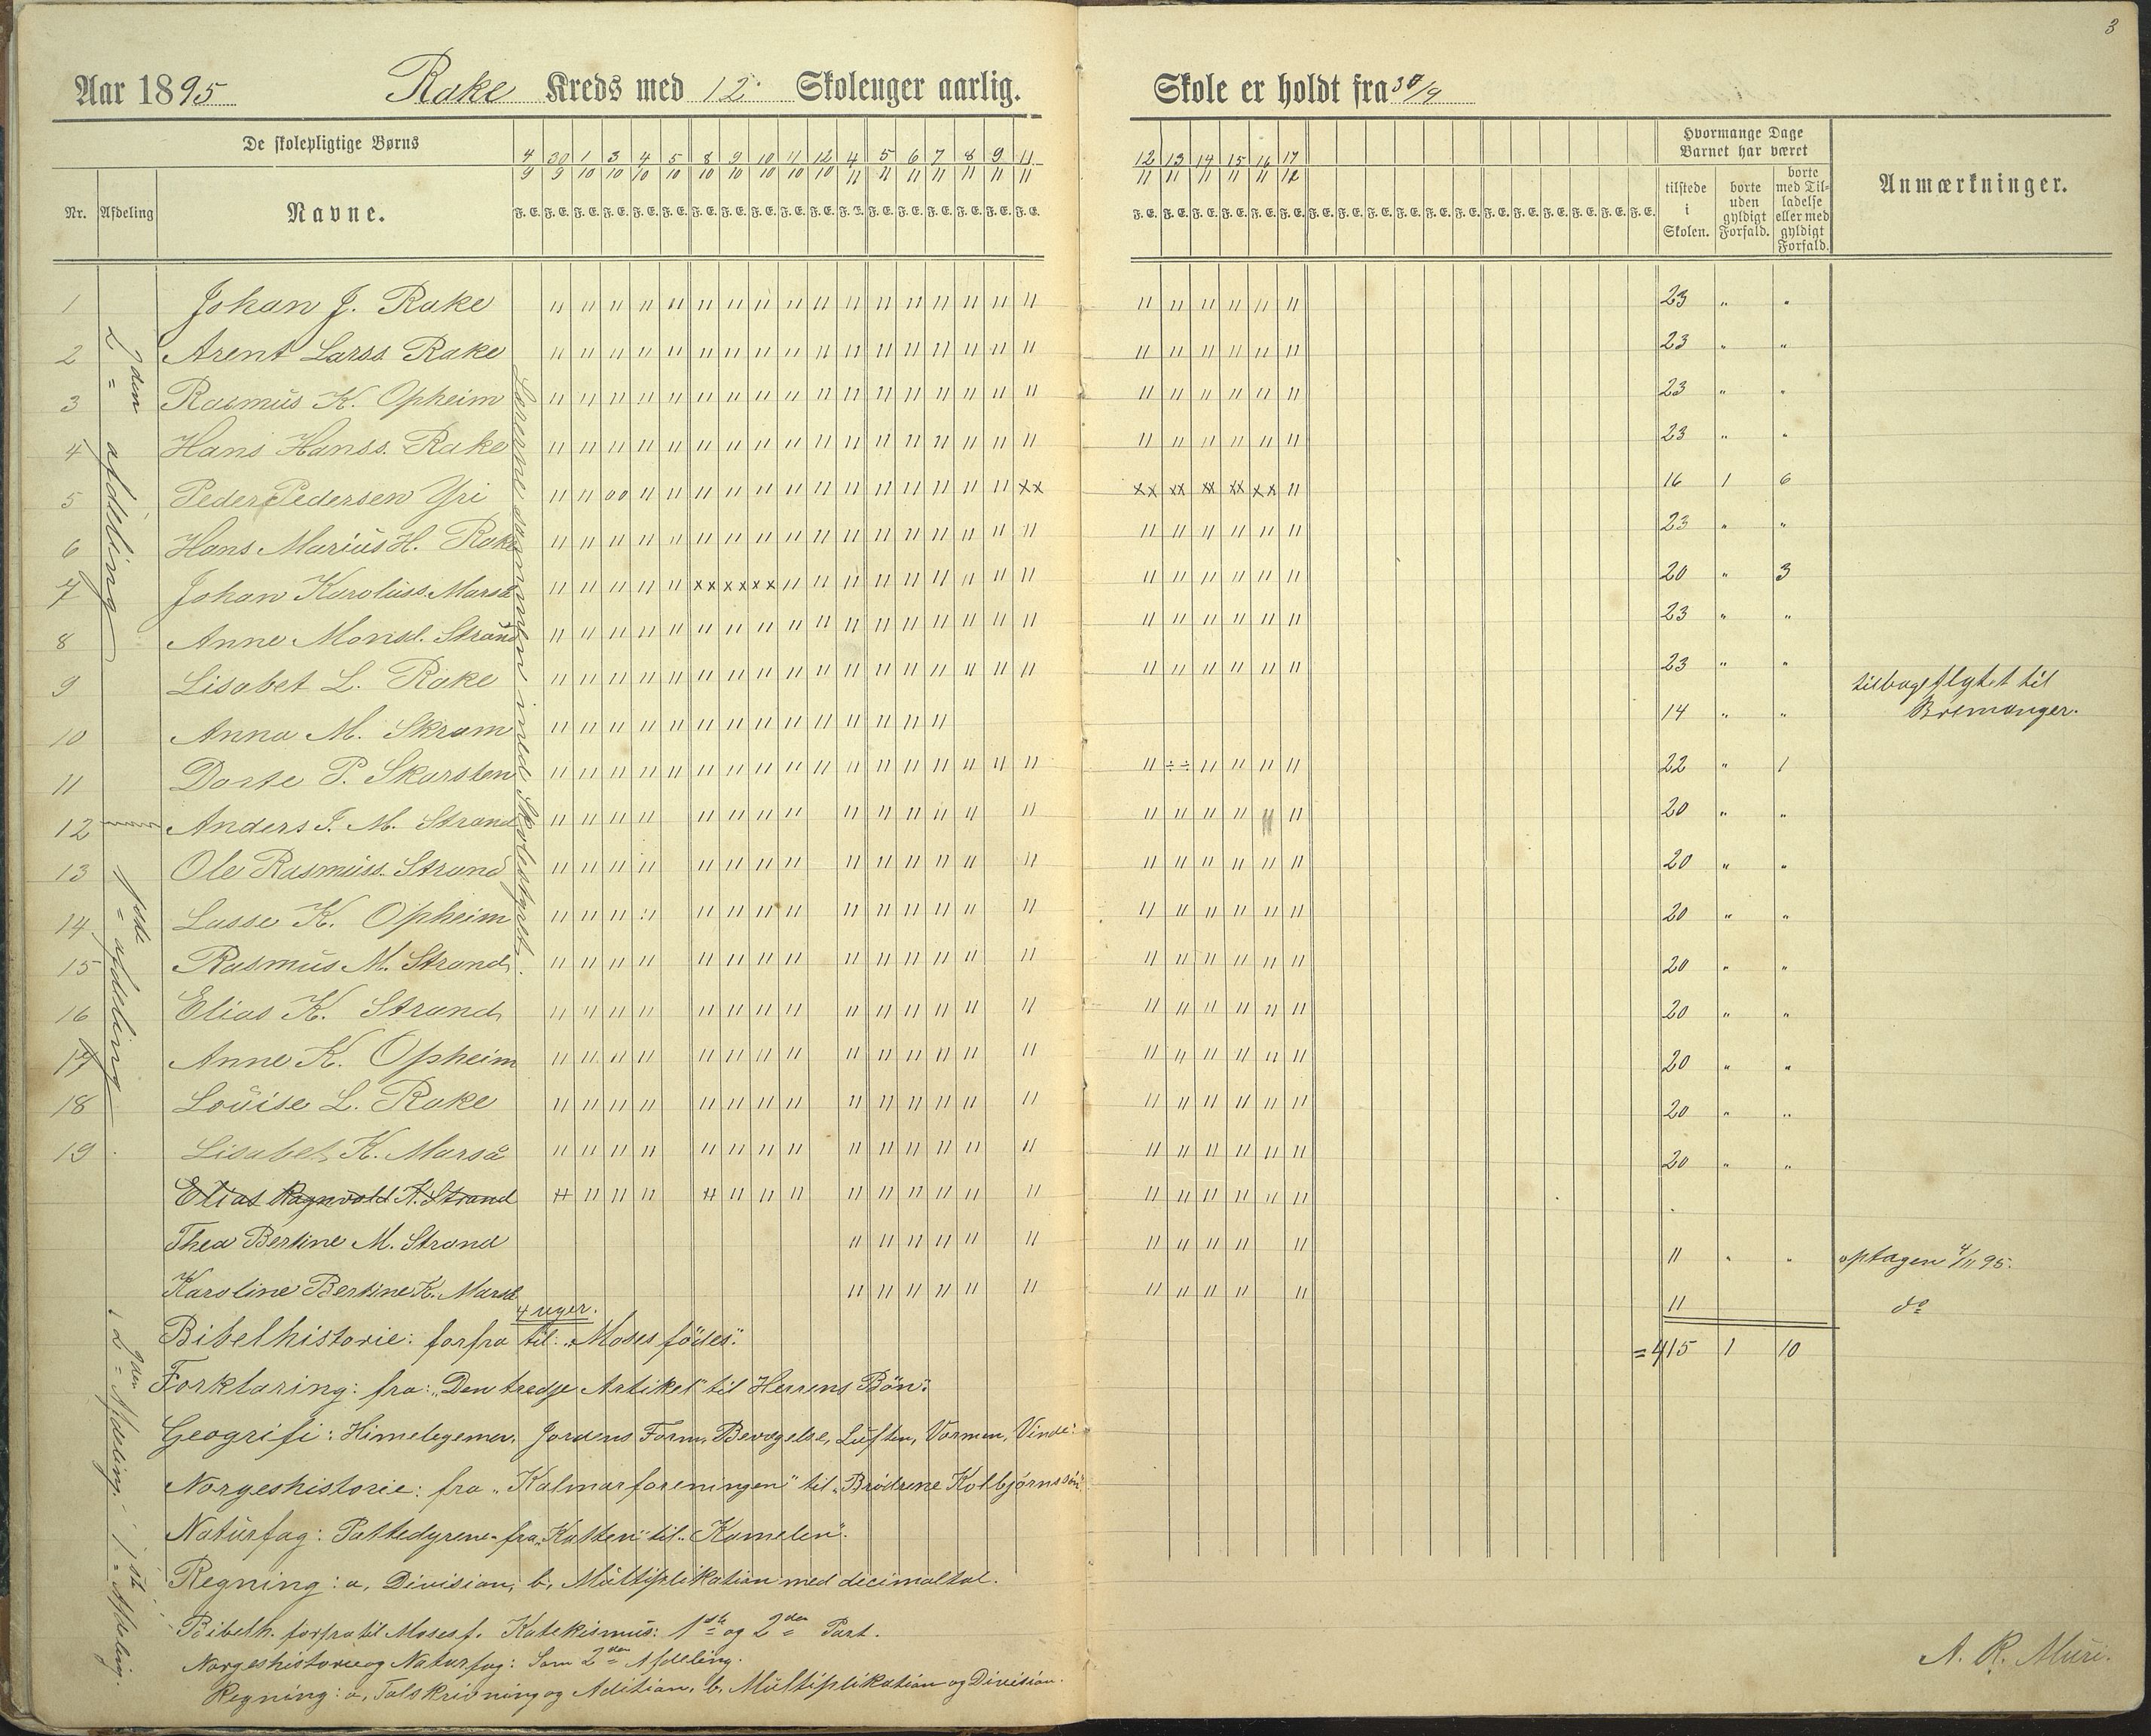 3
Aar 1895 Rake Kreds med 12 Skoleuger aarlig. Skole er holdt fra 30/9
De skolepligtige Børns
Nr. Afdeling Navne.
4/9 30/9 1/10 3/10 4/10 5/10 8/10 9/10 10/10 11/10 12/10 4/11 5/11 6/11 7/11 8/11 9/11 11/11
12/11 13/11 14/11 15/11 16/11
F. E. F. E. F. E. F. E. F. E. F. E. F. E. F. E. F. E. F. E. F. E. F. E. F. E. F. E. F. E. F. E. F. E. F. E.
F. E. F. E. F. E. F. E. F. E. F. E. F. E. F. E. F. E. F. E. F. E. F. E. F. E. F. E. F. E. F. E. F. E. F. E.
Hvormange Dage
Barnet har været
tilstede i Skolen.
borte uden gyldigt Forfald.
borte med Tilladelse eller med gyldigt Forfald.
Anmærkninger.
2den afdeling
1ste afdeling
Lærerne sammen med Skolestyret.
1 Johan J. Rake 23 " "
2 Arent Larss Rake 23 " "
3 Rasmus K. Opheim 23 " "
4 Hans Hanss. Rake 23 " "
5 Peder Pedersen Yri 16 1 6
6 Hans Marius H. Rake 23 " "
7 Johan Karoluss. Marså 20 " 3
8 Anne Monsd. Strand 23 " "
9 Lisabet L. Rake 23 " "
10 Anna M. Skram 14 " " tilbageflytet til
Bremanger.
11 Dorte P. Skarsten 22 " 1
12 Anders J. M. Strand 20 " "
13 Ole Rasmuss. Strand 20 " "
14 Lasse K. Opheim 20 " "
15 Rasmus M. Strand 20 " "
16 Elias K. Strand 20 " "
17 Anne K. Opheim 20 " "
18 Louise L. Rake 20 " "
19 Lisabet K. Marså 20 " "
Elias Ragnvald K. Strand
Thea Bertine M. Strand 11 " " optagen 4/11 95.
Karoline Bertine K. Marså 11 do
4 uger.
= 415 1 10
2den Afdeling.
Bibelhistorie: forfra til "Moses födes".
Forklaring: fra: "Den tredje Artikel" til Herrens Bön".
Geografi: Himelegemer, Jordens Form, Bevægelse, Luften, Varmen, Vinde.
Norgeshistorie: fra "Kalmarforeningen" til "Brödrene Kolbjörnssön"
Naturfag: Pattedyrene fra "Katten" til "Kamelen".
Regning: a, Division, b, Multiplikation med decimaltal.
1ste Afdeling.
Bibelh. forfra til Moses f. Katekismus: 1ste og 2den Part.
Norgeshistorie og Naturfag: Som 2den Afdeling.
Regning: a, Talskrivning og Adition, b, Multiplikation og Division.
A. R. Muri.